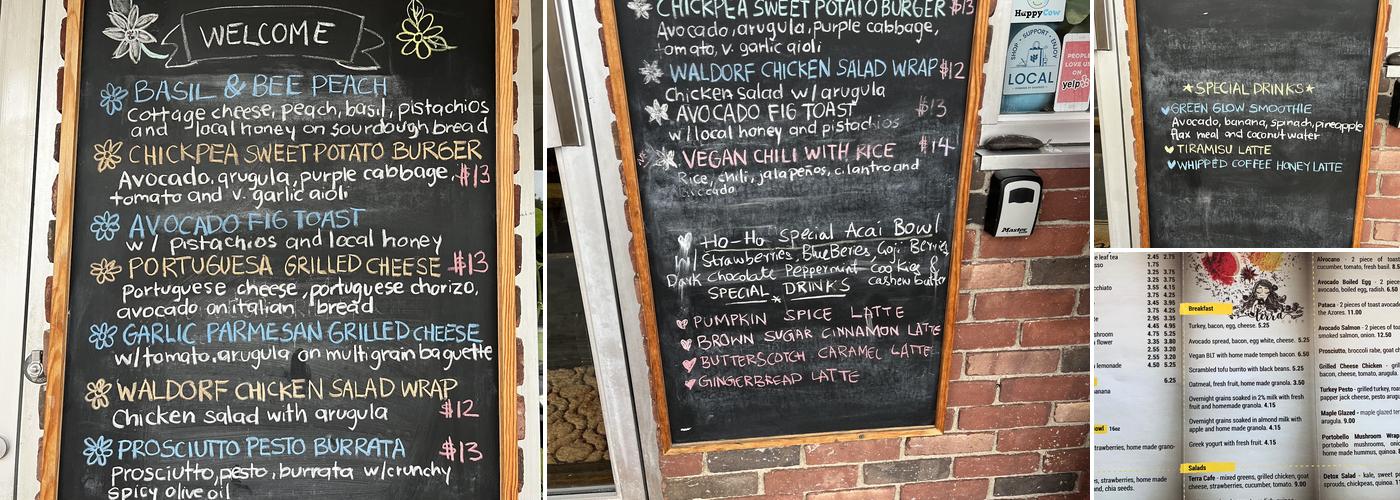 WELCOME
BASIL & BEE PEACH
Cottage cheese, peach, basil, pistachios
and local honey on sourdough bread
CHICKPEA SWEET POTATO BURGER
Avocado, arugula, purple cabbage, $13
tomato and v. garlic aioli
AVOCADO FIG TOAST
w/ pistachios and local honey
PORTUGUESA GRILLED CHEESE $13
Portuguese cheese, portuguese chorizo,
avocado on italian bread
GARLIC PARMESAN GRILLED CHEESE
w/tomato, arugula on multigrain baguette
WALDORF CHICKEN SALAD WRAP
Chicken salad with arugula $12
PROSCIUTTO PESTO BURRATA $13
Prosciutto, pesto, burrata w/crunchy
spicy olive oil
CHICKPEA SWEET POTATO BURGER $13
Avocado, arugula, purple cabbage,
tomato, v. garlic aioli
WALDORF CHICKEN SALAD WRAP $12
Chicken salad w/ arugula
AVOCADO FIG TOAST $13
w/ local honey and pistachios
VEGAN CHILI WITH RICE $14
Rice, chili, jalapeños, cilantro and
avocado
Ho-Ho Special Acai Bowl
w/ Strawberries, BlueBeries Goji Berries
Dark Chocolate Peppermint cookies &
cashew butter
SPECIAL DRINKS
PUMPKIN SPICE LATTE
BROWN SUGAR CINNAMON LATTE
BUTTERSCOTCH CARAMEL LATTE
GINGERBREAD LATTE
HappyCow
SHOP · SUPPORT · ENJOY
LOCAL
PEOPLE
LOVE US
ON
yelp
Master
SPECIAL DRINKS
GREEN GLOW SMOOTHIE
Avocado, banana, spinach, pineapple
flax meal and coconut water
TIRAMISU LATTE
WHIPPED COFFEE HONEY LATTE
e leaf tea 2.45 2.75
sso 1.75
3.25 3.75
3.25 3.75
3.55 4.25
3.75 4.25
3.95 4.45
2.95 3.35
4.45 4.95
shroom 4.75 5.25
flower 3.35 3.85
2.55 3.20
2.55 3.20
lemonade 4.50 5.25
6.25
owl 16oz
trawberries, home made grano-
nd, chia seeds.
terra
Breakfast
Turkey, bacon, egg, cheese. 5.25
Avocado spread, bacon, egg white, cheese. 5.25
Vegan BLT with home made tempeh bacon. 6.50
Scrambled tofu burrito with black beans. 5.25
Oatmeal, fresh fruit, home made granola. 3.50
Overnight grains soaked in 2% milk with fresh
fruit and homemade granola. 4.15
Overnight grains soaked in almond milk with
apple and home made granola. 4.15
Greek yogurt with fresh fruit. 4.15
Salads
Terra Cafe - mixed greens, grilled chicken, goat
cheese, strawberries, cucumber, tomato. 9.00
Alvocano - 2 piece of toast
cucumber, tomato, fresh basil. 8
Avocado Boiled Egg - 2 piec
avocado, boiled egg, radish. 6.50
Pataca - 2 pieces of toast avocad
the Azores. 11.00
Avocado Salmon - 2 pieces of toast
smoked salmon, onion. 12.50
Prosciutto, broccoli rabe, goat ch
Grilled Cheese Chicken - gril
bacon, cheese, tomato, arugula.
Turkey Pesto - grilled turkey, ro
papper jack cheese, pesto arugu
Maple Glazed - maple glazed te
organic greens, cucumber, tomat
Portobello Mushroom Wrap
portobello mushrooms, onio
home made hummus, quinoa.
Detox Salad - kale, sweet po
sprouts, chickpeas, quinoa